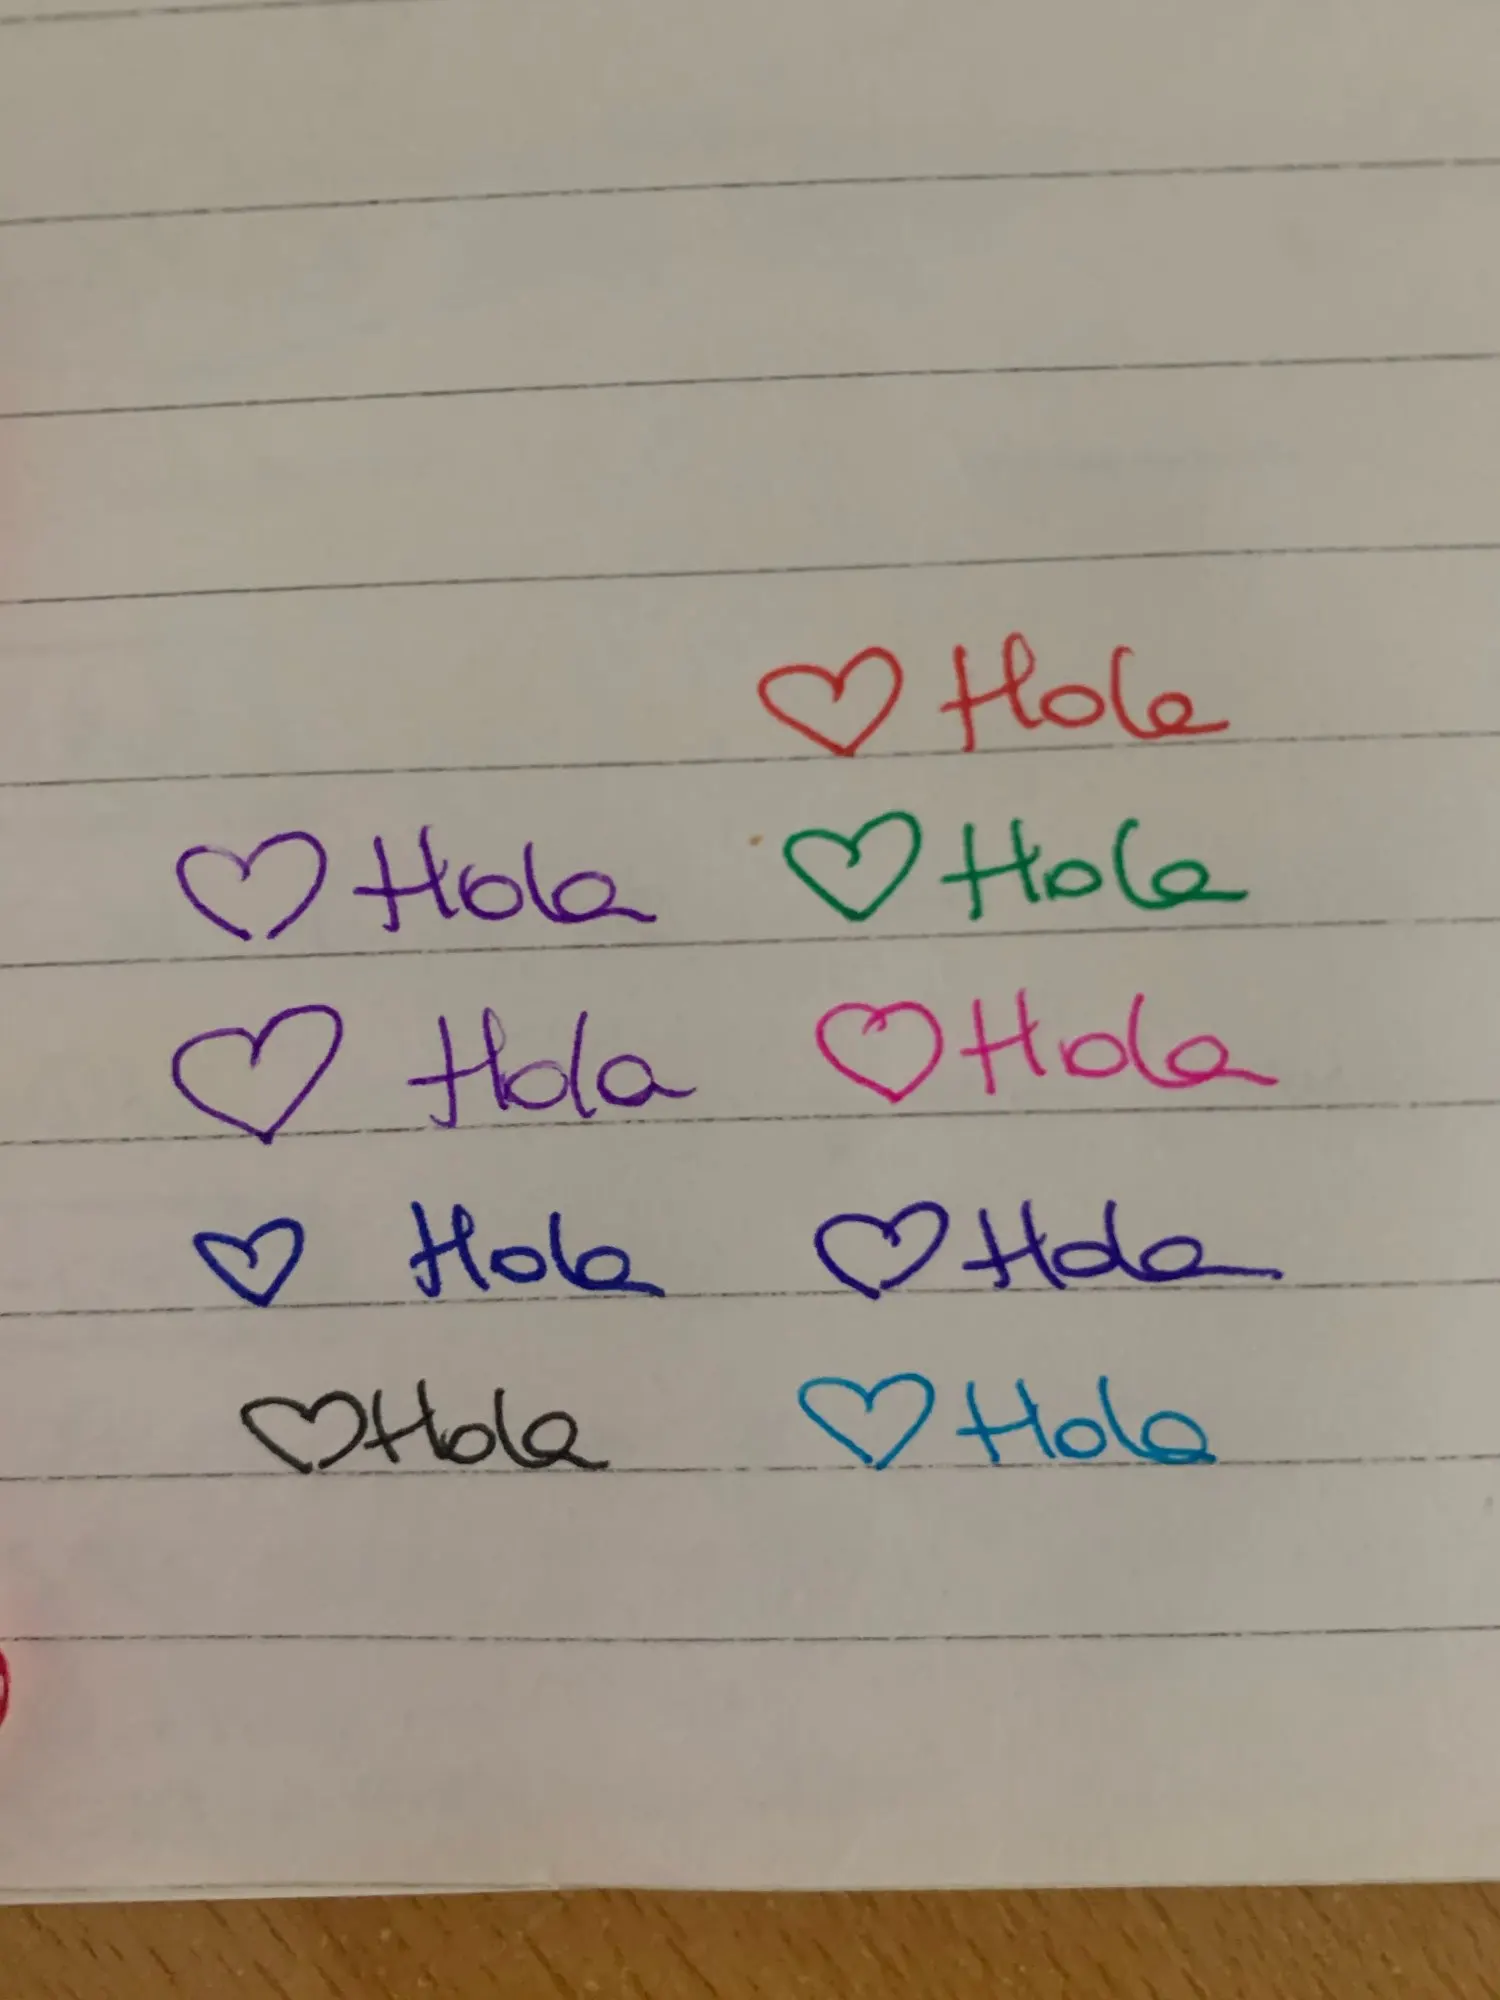 ♡ Hola
♡ Hola ♡ Hola
♡ Hola ♡ Hola
♡ Hola ♡ Hola
♡ Hola ♡ Hola